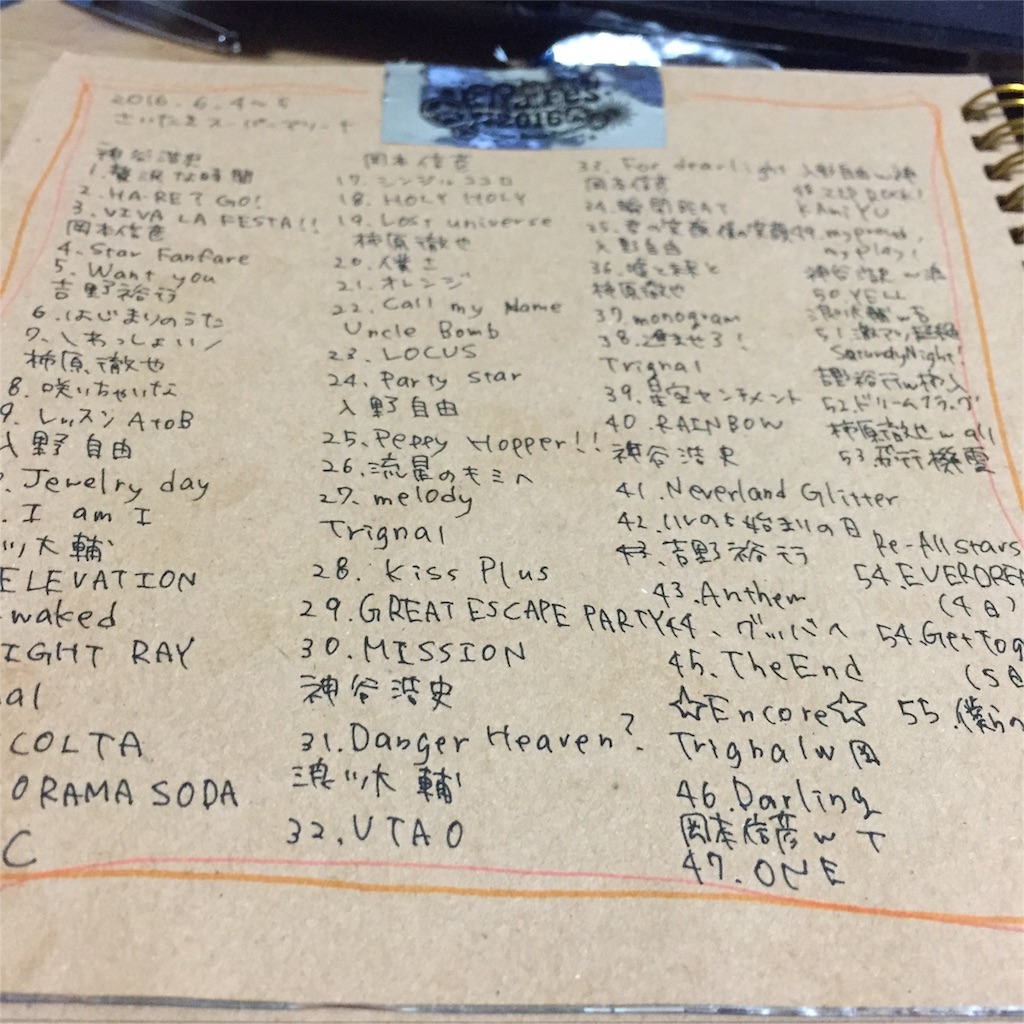 2016.6.4~5
さいたまスーパーアリーナ
2016
神谷浩史
1.贅沢な時間
2.HA-RE-GO!
3.VIVA LA FESTA!!
岡本信彦
4.Star Fanfare
5.Want you
吉野裕行
6.はじまりのうた
7.\わっしょい/
柿原徹也
8.咲いちゃいな
9.レッスンAtoB
入野自由
Jewelry day
.I am I
大輔
ELEVATION
waked
IGHT RAY
nal
COLTA
ORAMA SODA
C
岡本信彦
17.シンジルココロ
18.HOLY HOLY
19.Lost universe
柿原徹也
20.僕さ
21.オレンジ
22.Call my Name
Uncle Bomb
23.LOCUS
24.Party Star
入野自由
25.Peppy Hopper!!
26.流星のキミへ
27.melody
Trignal
28.Kiss Plus
29.GREAT ESCAPE PARTY
30.MISSION
神谷浩史
31.Danger Heaven?
浪川大輔
32.UTAO
33.For dearlight
岡本信彦
34.瞬間BEAT
35.君の笑顔僕の笑顔
入野自由
36.嘘と未来と
柿原徹也
37.monogram
38.進ませろ!
Trignal
39.星空センチメント
40.RAINBOW
神谷浩史
41.Neverland Glitter
42.ハレのち始まりの日
43.吉野裕行
43.Anthem
44.グッバへ
45.The End
☆Encore☆
Trignal w 岡
46.Darling
岡本信彦 w T
47.ONE
入野自由 w 神
48.ZIP ROCK!
KAmiYU
49.my proud,
my play!
神谷浩史 w 浪
50.YELL
浪川大輔 w 吉
51.激アツ超纏
SaturdyNight!
吉野裕行 w 柿入
52.ドリームフラッグ
柿原徹也 w all
53.飛行機雲
Re-Allstars
54.EVERDREA
(4日)
54.GetTog
(5日
55.僕らの